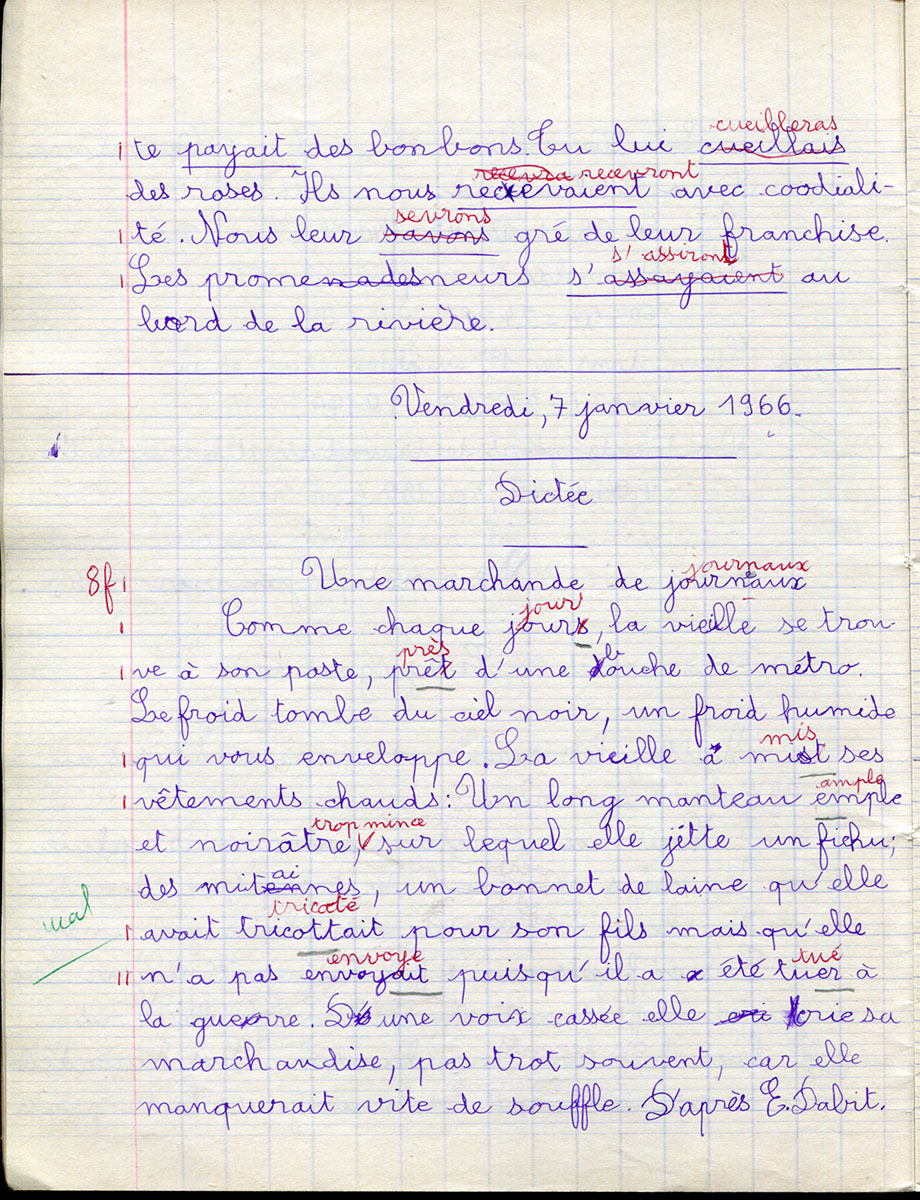 cueilleras
te payait des bonbons. Tu lui cueillais
recevra recevront
des roses. Ils nous recevaient avec coodiali-
sevrons
té. Nous leur savons gré de leur franchise.
s'assiront
Les promenadesneurs s'assayaient au
bord de la rivière.
Vendredi, 7 janvier 1966.
Dictée
journaux
8f Une marchande de journeaux
jour
Comme chaque jours, la vieille se trou-
près
ve à son poste, prêt d'une bouche de métro.
Le froid tombe du ciel noir, un froid humide
mis
qui vous enveloppe. La vieille a mist ses
ample
vêtements chauds: Un long manteau emple
trop mince
et noirâtre, sur lequel elle jette un fichu;
ai
des mitennes, un bonnet de laine qu'elle
tricoté
mal
avait tricottait pour son fils mais qu'elle
envoyé tué
n'a pas envoyait puisqu'il a été tuer à
la guerre. D'une voix cassée elle cri crie sa
marchandise, pas trot souvent, car elle
manquerait vite de souffle. D'après E. Dabit.